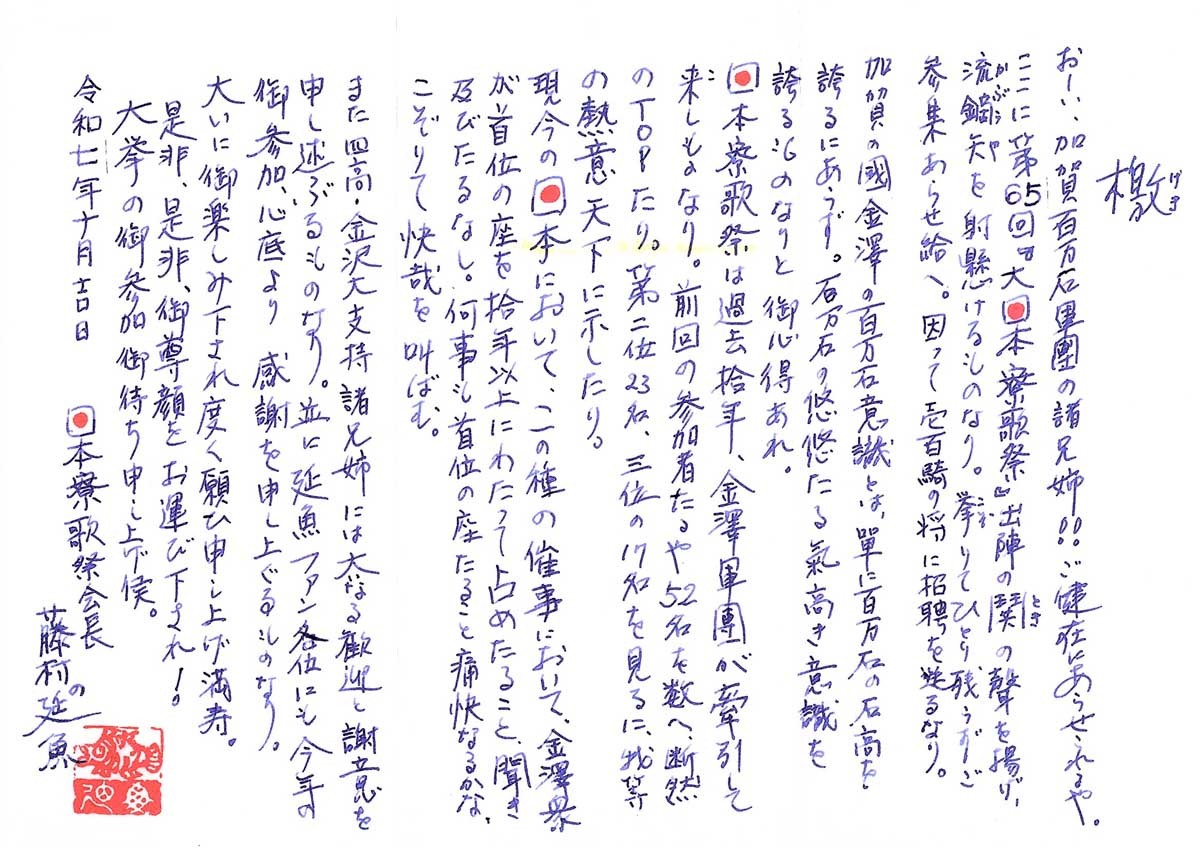 檄
げき
おーい、加賀百万石軍團の諸兄姉!! ご健在にあらせらるるや。
ここに第65回『大日本寮歌祭』出陣の鬨の聲を揚げ、
とき
流鏑矢を射懸けるものなり。挙りてひとり残らずご
かぶらや
こぞ
参集あらせ給へ。因って壱百騎の将に招聘を送るなり。
加賀の國金澤の百万石意識とは、單に百万石の石高を
誇るにあらず。百万石の悠悠たる氣高き意識を
誇るものなりと 御心得あれ。
日本寮歌祭は過去拾年、金澤軍團が牽引して
来しものなり。前回の参加者たるや52名を数へ、断然
のTOPたり。第二位23名、三位の17名を見るに、我等
の熱意天下に示したり。
現今の日本において、この種の催事において、金澤衆
が首位の座を拾年以上にわたって占めたること、聞き
及びたるなし。何事も首位の座たること痛快なるかな、
こぞりて快哉を叫ばむ。
また四高・金沢大支持諸兄姉には大なる歓迎と謝意を
申し述ぶるものなり。並に延魚ファン各位にも今年の
御参加、心底より 感謝を申し上ぐるものなり。
大いに御楽しみ下され度く願ひ申し上げ満寿。
是非、是非、御尊顔をお運び下され!
大挙の御参加御待ち申し上げ候。
令和七年十月吉日
日本寮歌祭会長
藤村延魚
の